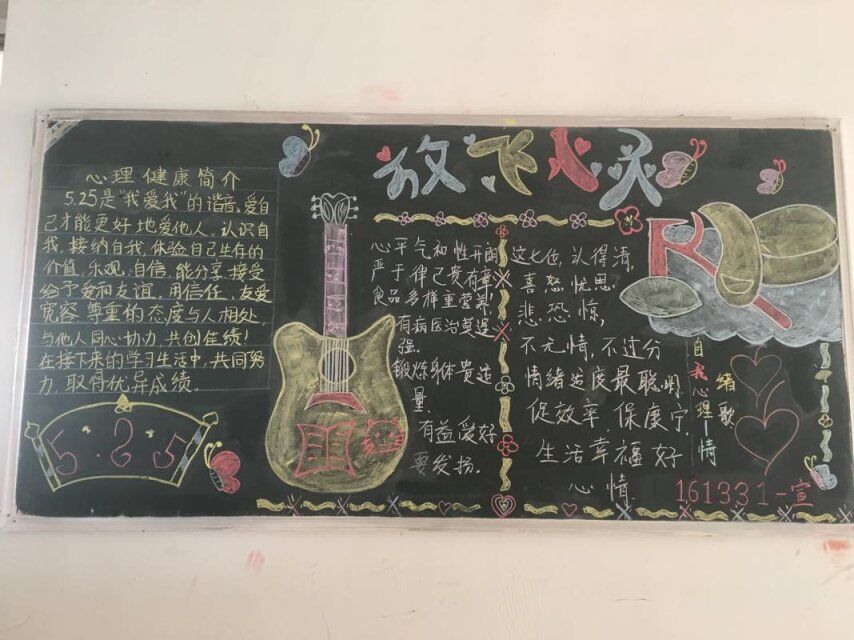 放飞心灵
心理健康简介
5.25是“我爱我”的谐音,爱自
己才能更好地爱他人。认识自
我,接纳自我,体验自己生存的
价值,乐观、自信,能分享、接受
给予爱和友谊,用信任、友爱
宽容、尊重的态度与人相处,
与他人同心协力,共创佳绩!
在接下来的学习生活中,共同努
力,取得优异成绩.
5.25
心平气和性开
严于律己贵有
食品多样重营养
有病医治莫逞
强.
锻炼身体贵适
量.
有益爱好
要发扬.
这七位,认得清,
喜怒忧思,
悲恐惊,
不无情,不过分
情绪适度最聪明
促效率,保康宁,
生活幸福好
心情.
自我心理—情
绪歌
161331-宣